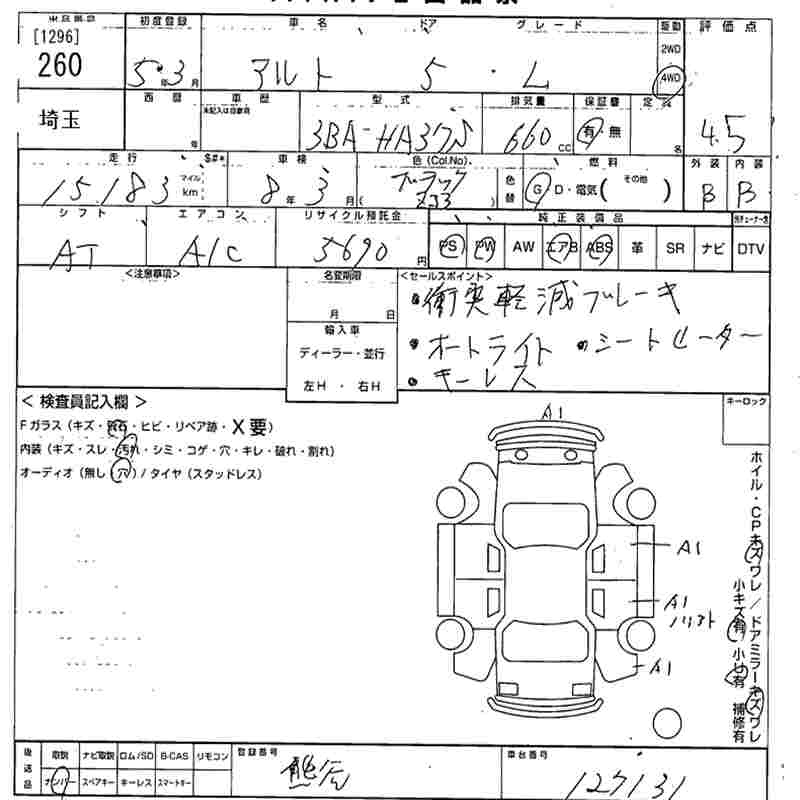 [1296]
初度登録 車名 ドア グレード 駆動 評価点
260 5年3月 アルト 5 L 2WD 4WD
埼玉
西暦 車歴 型式 排気量 保証書 定員
未記入は自家用
年 3BA-HA37S 660 cc 有・無 名 4.5
走行 車検 色(Col.No). 燃料 外装 内装
15,183 マイル km 8年3月 ブラック 色替 G D・電気( その他 ) B B
シフト エアコン リサイクル預託金 純正装備品
AT A/C 5690円 PS PW AW エアB ABS 革 SR ナビ DTV
<注意事項> 名変期限 <セールスポイント>
月 日
・衝突軽減ブレーキ
輸入車
ディーラー・並行
・オートライト ・シートヒーター
左H ・ 右H
・キーレス
< 検査員記入欄 > キーロック
Fガラス(キズ・飛石・ヒビ・リペア跡・X要)
内装(キズ・スレ・汚れ・シミ・コゲ・穴・キレ・破れ・割れ)
オーディオ(無し・穴)/タイヤ(スタッドレス)
A1
A1
A1
A1
ホイル・CPキズワレ/ドアミラーキズワレ
小キズ有 小凹有 補修有
後送品 取説 ナビ取説 ロム/SD B-CAS リモコン 登録番号 車台番号
ナンバー スペアキー キーレス スマートキー
127131